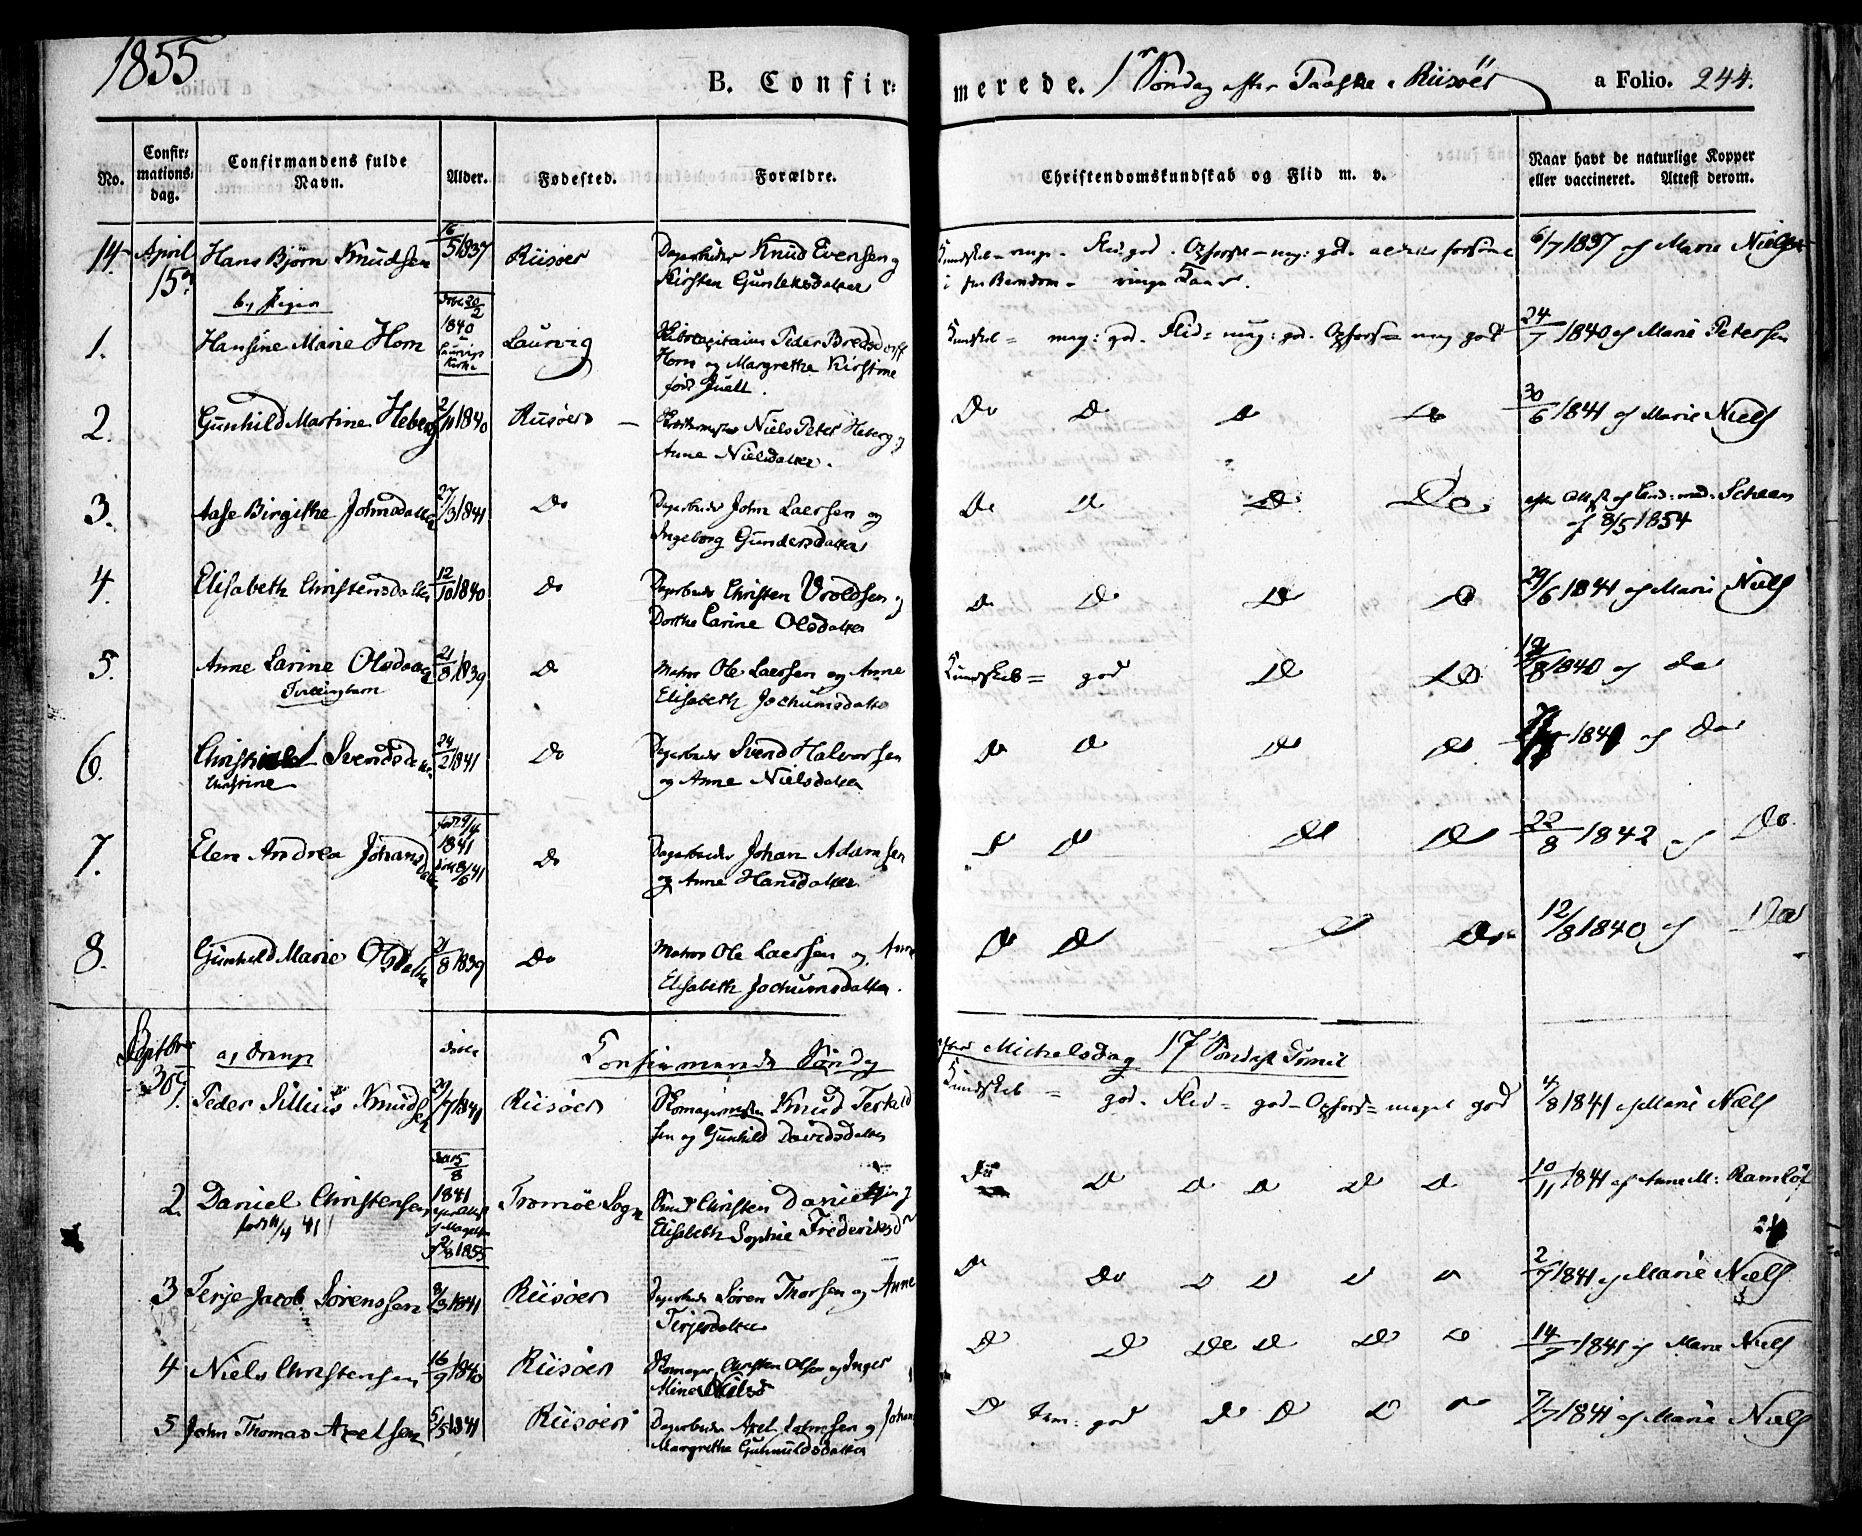 1855
B. Confir=
merede. 1r Søndag efter Paaske i Riisøer
a Folio. 244.
No.
Confir=
mations=
dag.
Confirmandens fulde
Navn.
Alder.
Fødested.
Forældre.
Christendomskundskab og Flid m. v.
Naar havt de naturlige Kopper
eller vaccineret. Attest derom.
14. April Hans Bjørn Knudsen 16/5 1837 Riisøer Dagarbeider Knud Evensen og
15de Kirsten Gunleksdatter
Kundskab - ringe. Flid god. Opførsel - meg: god. 6/7 1837 af Marie Nielsen
i
b, Piger
1. Hansine Marie Horn 20/2 1840 Laurvigs Kirke Laurvig Peder Bredsdorff
Horn og Margrethe Kirstine
født Juell.
Kundsk = meg: god. Flid = meg: god. Opførs = meg god 24/7 1840 af Marie Petersen
2. Gunhild Martine Heberg 2/11 1840 Riisøer Niels Peter Heberg og
Anne Nielsdatter.
Do Do Do Do 30/6 1841 af Marie Niels
3. Aase Birgithe Johnsdatter 27/3 1841 Do Dagarbeider John Laersen og
Ingeborg Gundersdatter
Do Do Do Do efter Att. af Scheen
af 8/5 1854
4. Elisabeth Christensdatter 12/10 1840 Do Dagarbeider Christen Vroldsen og
Dorthe Carine Olsdatter
Do Do Do Do 29/6 1841 af Marie Niels
5. Anne Larine Olsdatter 21/8 1839 Do Matros Ole Laersen og Anne
Tvillingbarn Elisabeth Jochumsdatter
Kundskab = god Do Do 12/8 1840 af Do
6. Svendsdatter 24/2 1841 Do Dagarbeider Svend Halvorsen
Christine og Anne Nielsdatter
Do Do Do Do 1841 af Do
7. Elen Andrea Johansdatter født 29/4 1841 døbt 8/6 41 Do Dagarbeider Johan Adamsen
og Anne Hansdatter
Do Do Do Do 22/8 1842 af Do.
8. Gunhild Marie Olsdatter 21/8 1839 Do Matros Ole Laersen og Anne
Elisabeth Jochumsdatter.
Do Do Do 12/8 1840 af Do
Septbr a, Drenge døbt Confirmerede Søndag
efter Michelsdag 17 Søndag
30te Peder Sillius Knudsen 29/7 1841 Riisøer Skomagermester Knud Terkild
sen og Gunhild Davidsdatter
Kundskab = god. Flid = god - Opførs = meget god 4/8 1841 af Marie Niels
2. Daniel Christensen døbt 15/8 1841 Tromøe Sogn Christen Danielsen og
født 11/4 41 8/8 1855 Elisabeth Sophie Frederiksd
Do Do Do Do Do Do 10/11 1841 af Anne M: Ramløf
3 Terje Jacob Sørensen 8/3 1841 Riisøer Dagarbeider Søren Thorsen og Anne
Terjesdatter
Do Do Do Do Do Do 2/7 1841 af Marie Niels
4 Niels Christensen 16/9 1840 Riisøer Skomager Christen Olsen og Inger
Nielsd
Do Do Do Do Do Do 14/7 1841 af Marie Niels
5 John Thomas Axelsen 5/5 1841 Riisøer Dagarbeider Axel og Johan
Margrethe Gunnuldsdatter
Do tem: god Do Do Do Do 7/7 1841 af Marie Niels